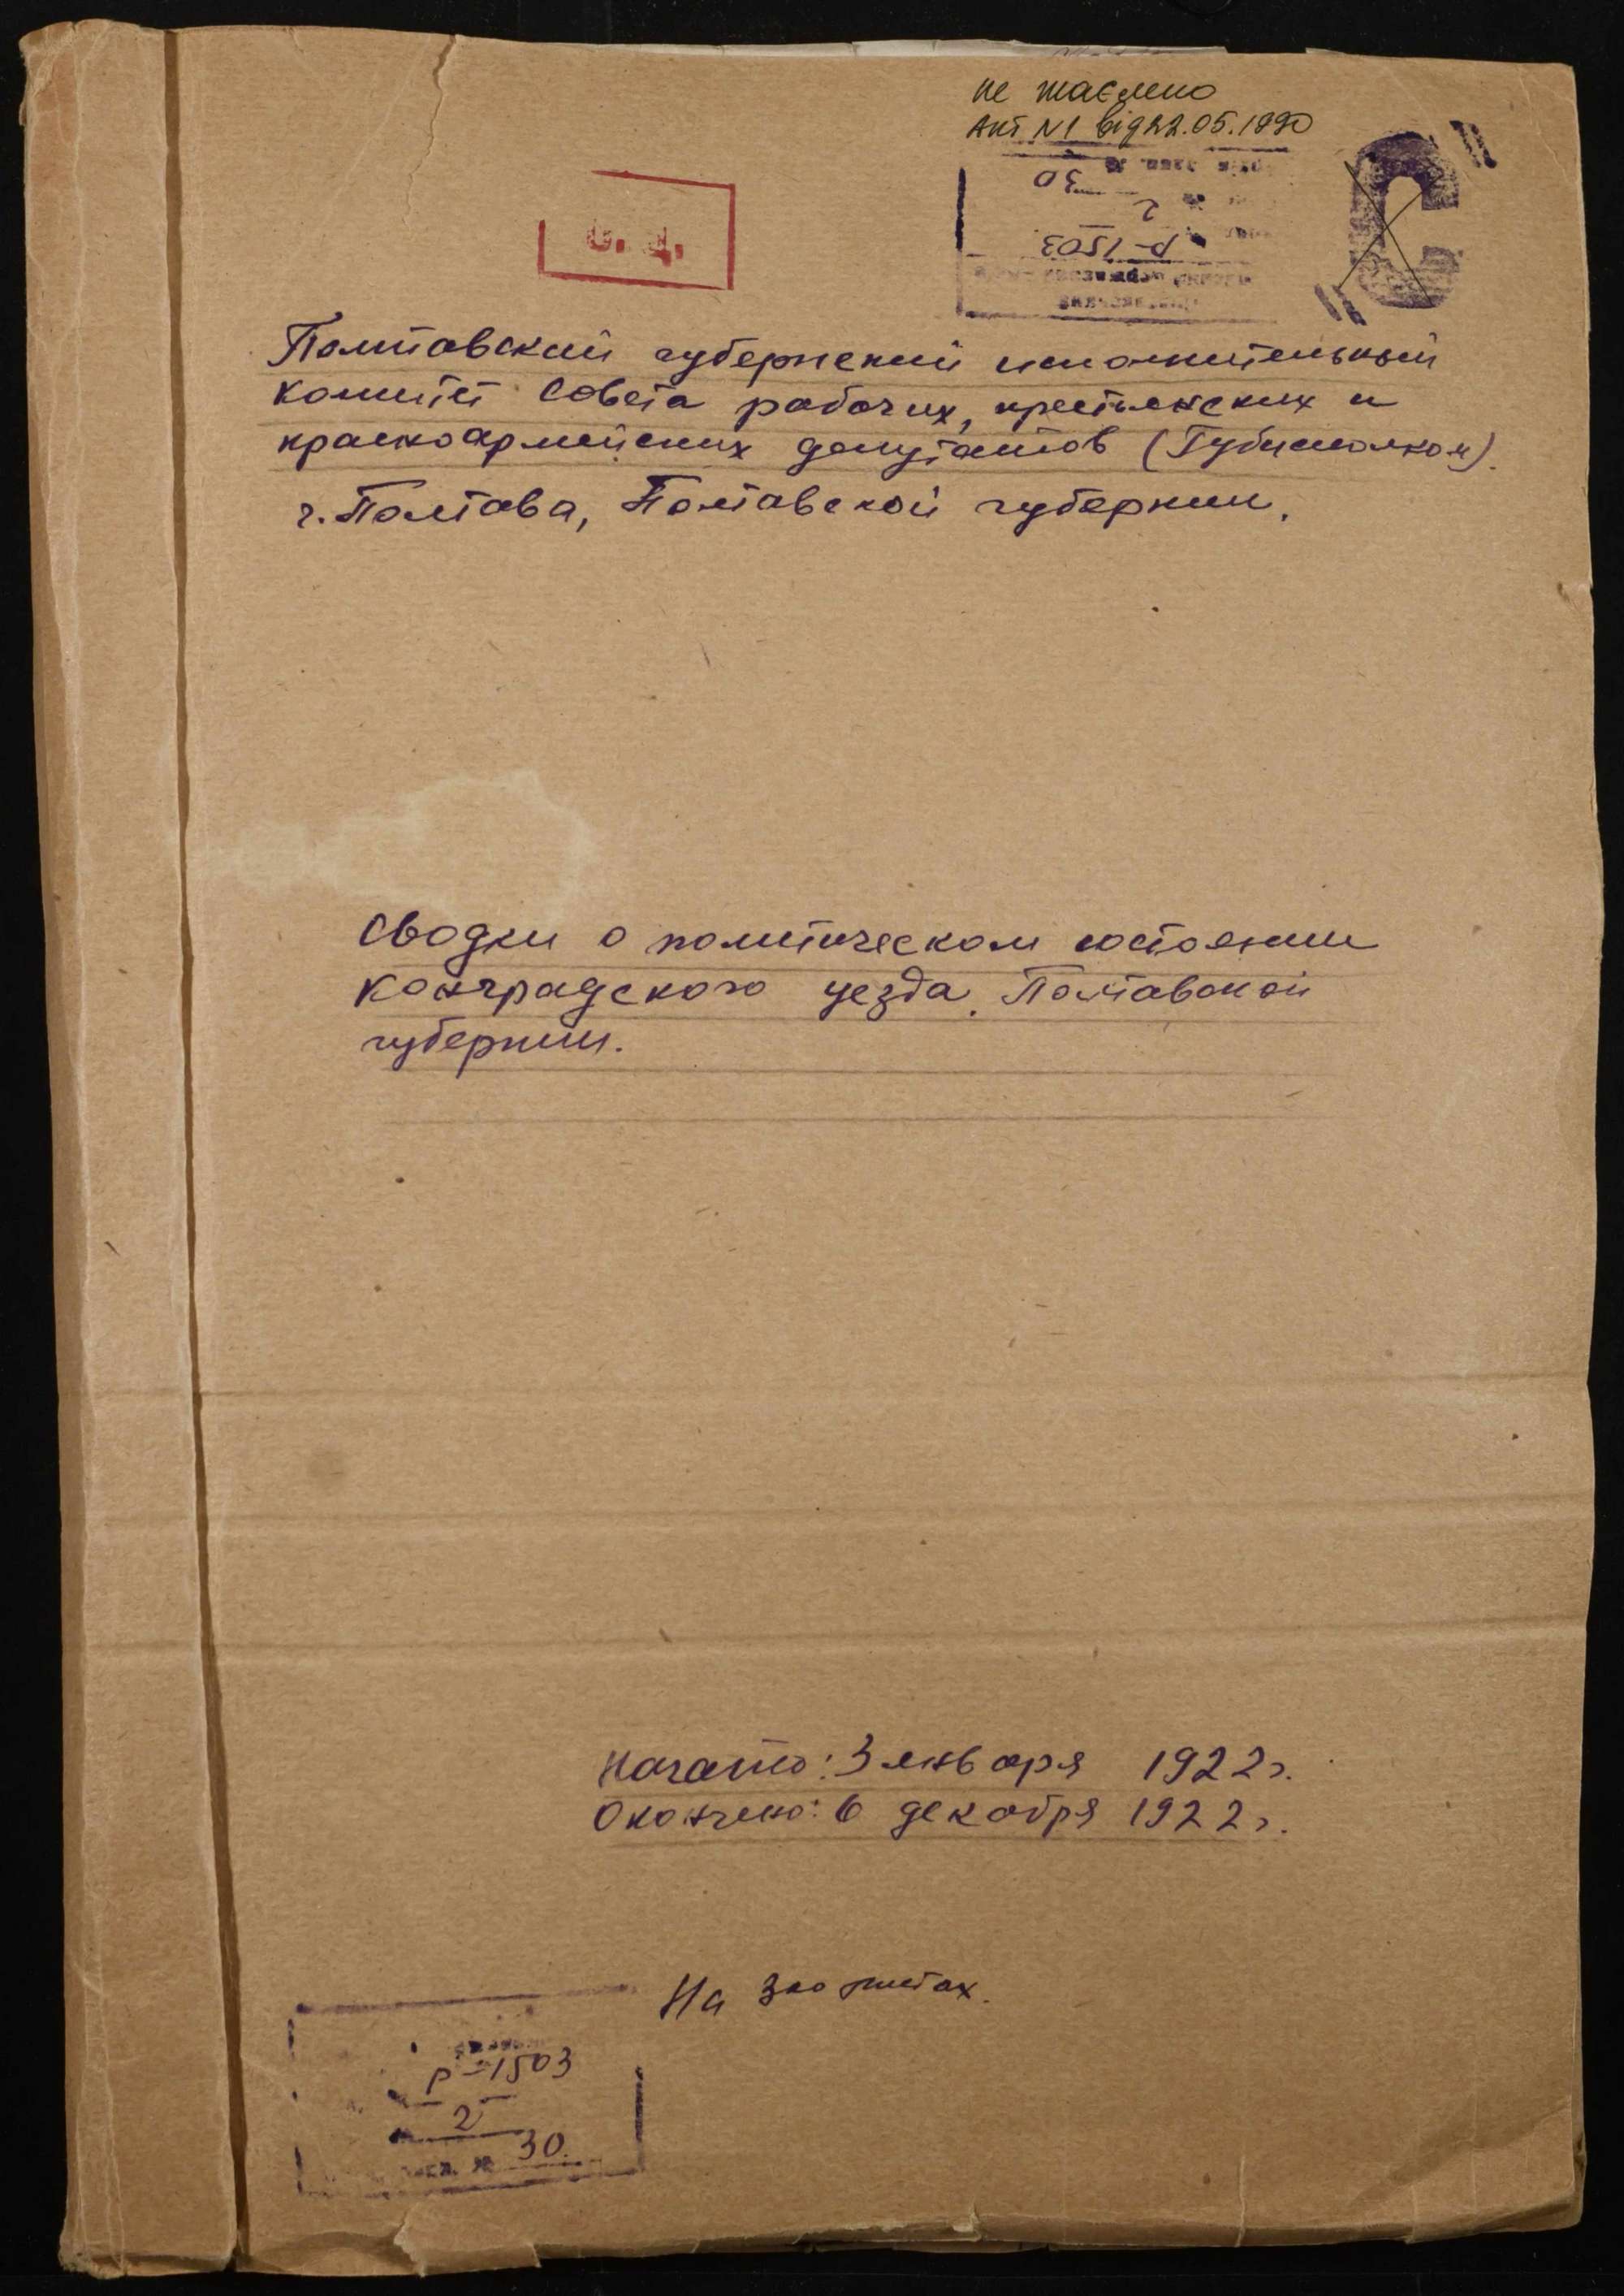 не таємно
Акт №1 від 22.05.1990
30
2
Р-1503
Полтавский губернский исполнительный
комитет Совета рабочих, крестьянских и
красноармейских депутатов (Губисполком).
г. Полтава, Полтавской губернии.
Сводки о политическом состоянии
Конградского уезда, Полтавской
губернии.
Начато: 3 января 1922 г.
Окончено: 6 декабря 1922 г.
На листах.
Р-1503
2
30.